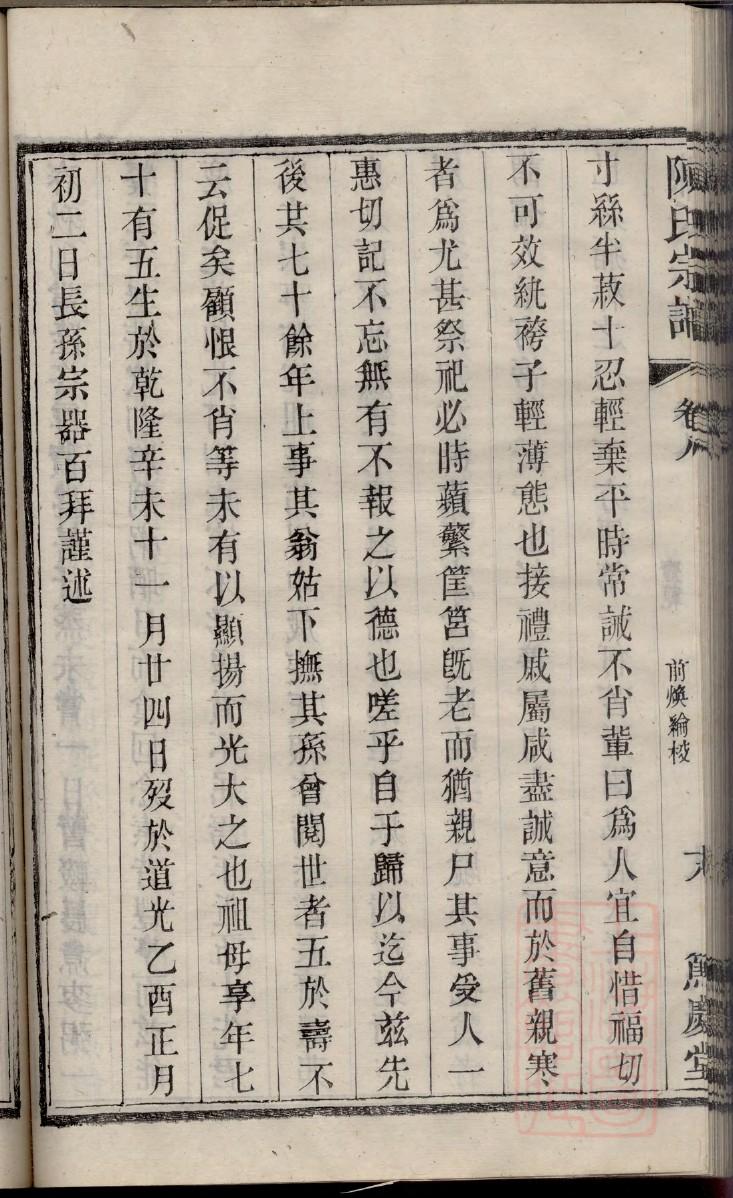 陳氏宗譜 卷八 前煥綸校 篤慶堂
寸絲半菽十忍輕棄平時常誡不肖輩曰爲人宜自惜福切
不可效紈袴子輕薄態也接禮戚屬咸盡誠意而於舊親寒
者爲尤甚祭祀必時蘋蘩筐筥旣老而猶親尸其事受人一
惠切記不忘無有不報之以德也嗟乎自于歸以迄今茲先
後其七十餘年上事其翁姑下撫其孫曾閱世者五於壽不
云促矣顧恨不肖等未有以顯揚而光大之也祖母享年七
十有五生於乾隆辛未十一月廿四日歿於道光乙酉正月
初二日長孫宗器百拜謹述